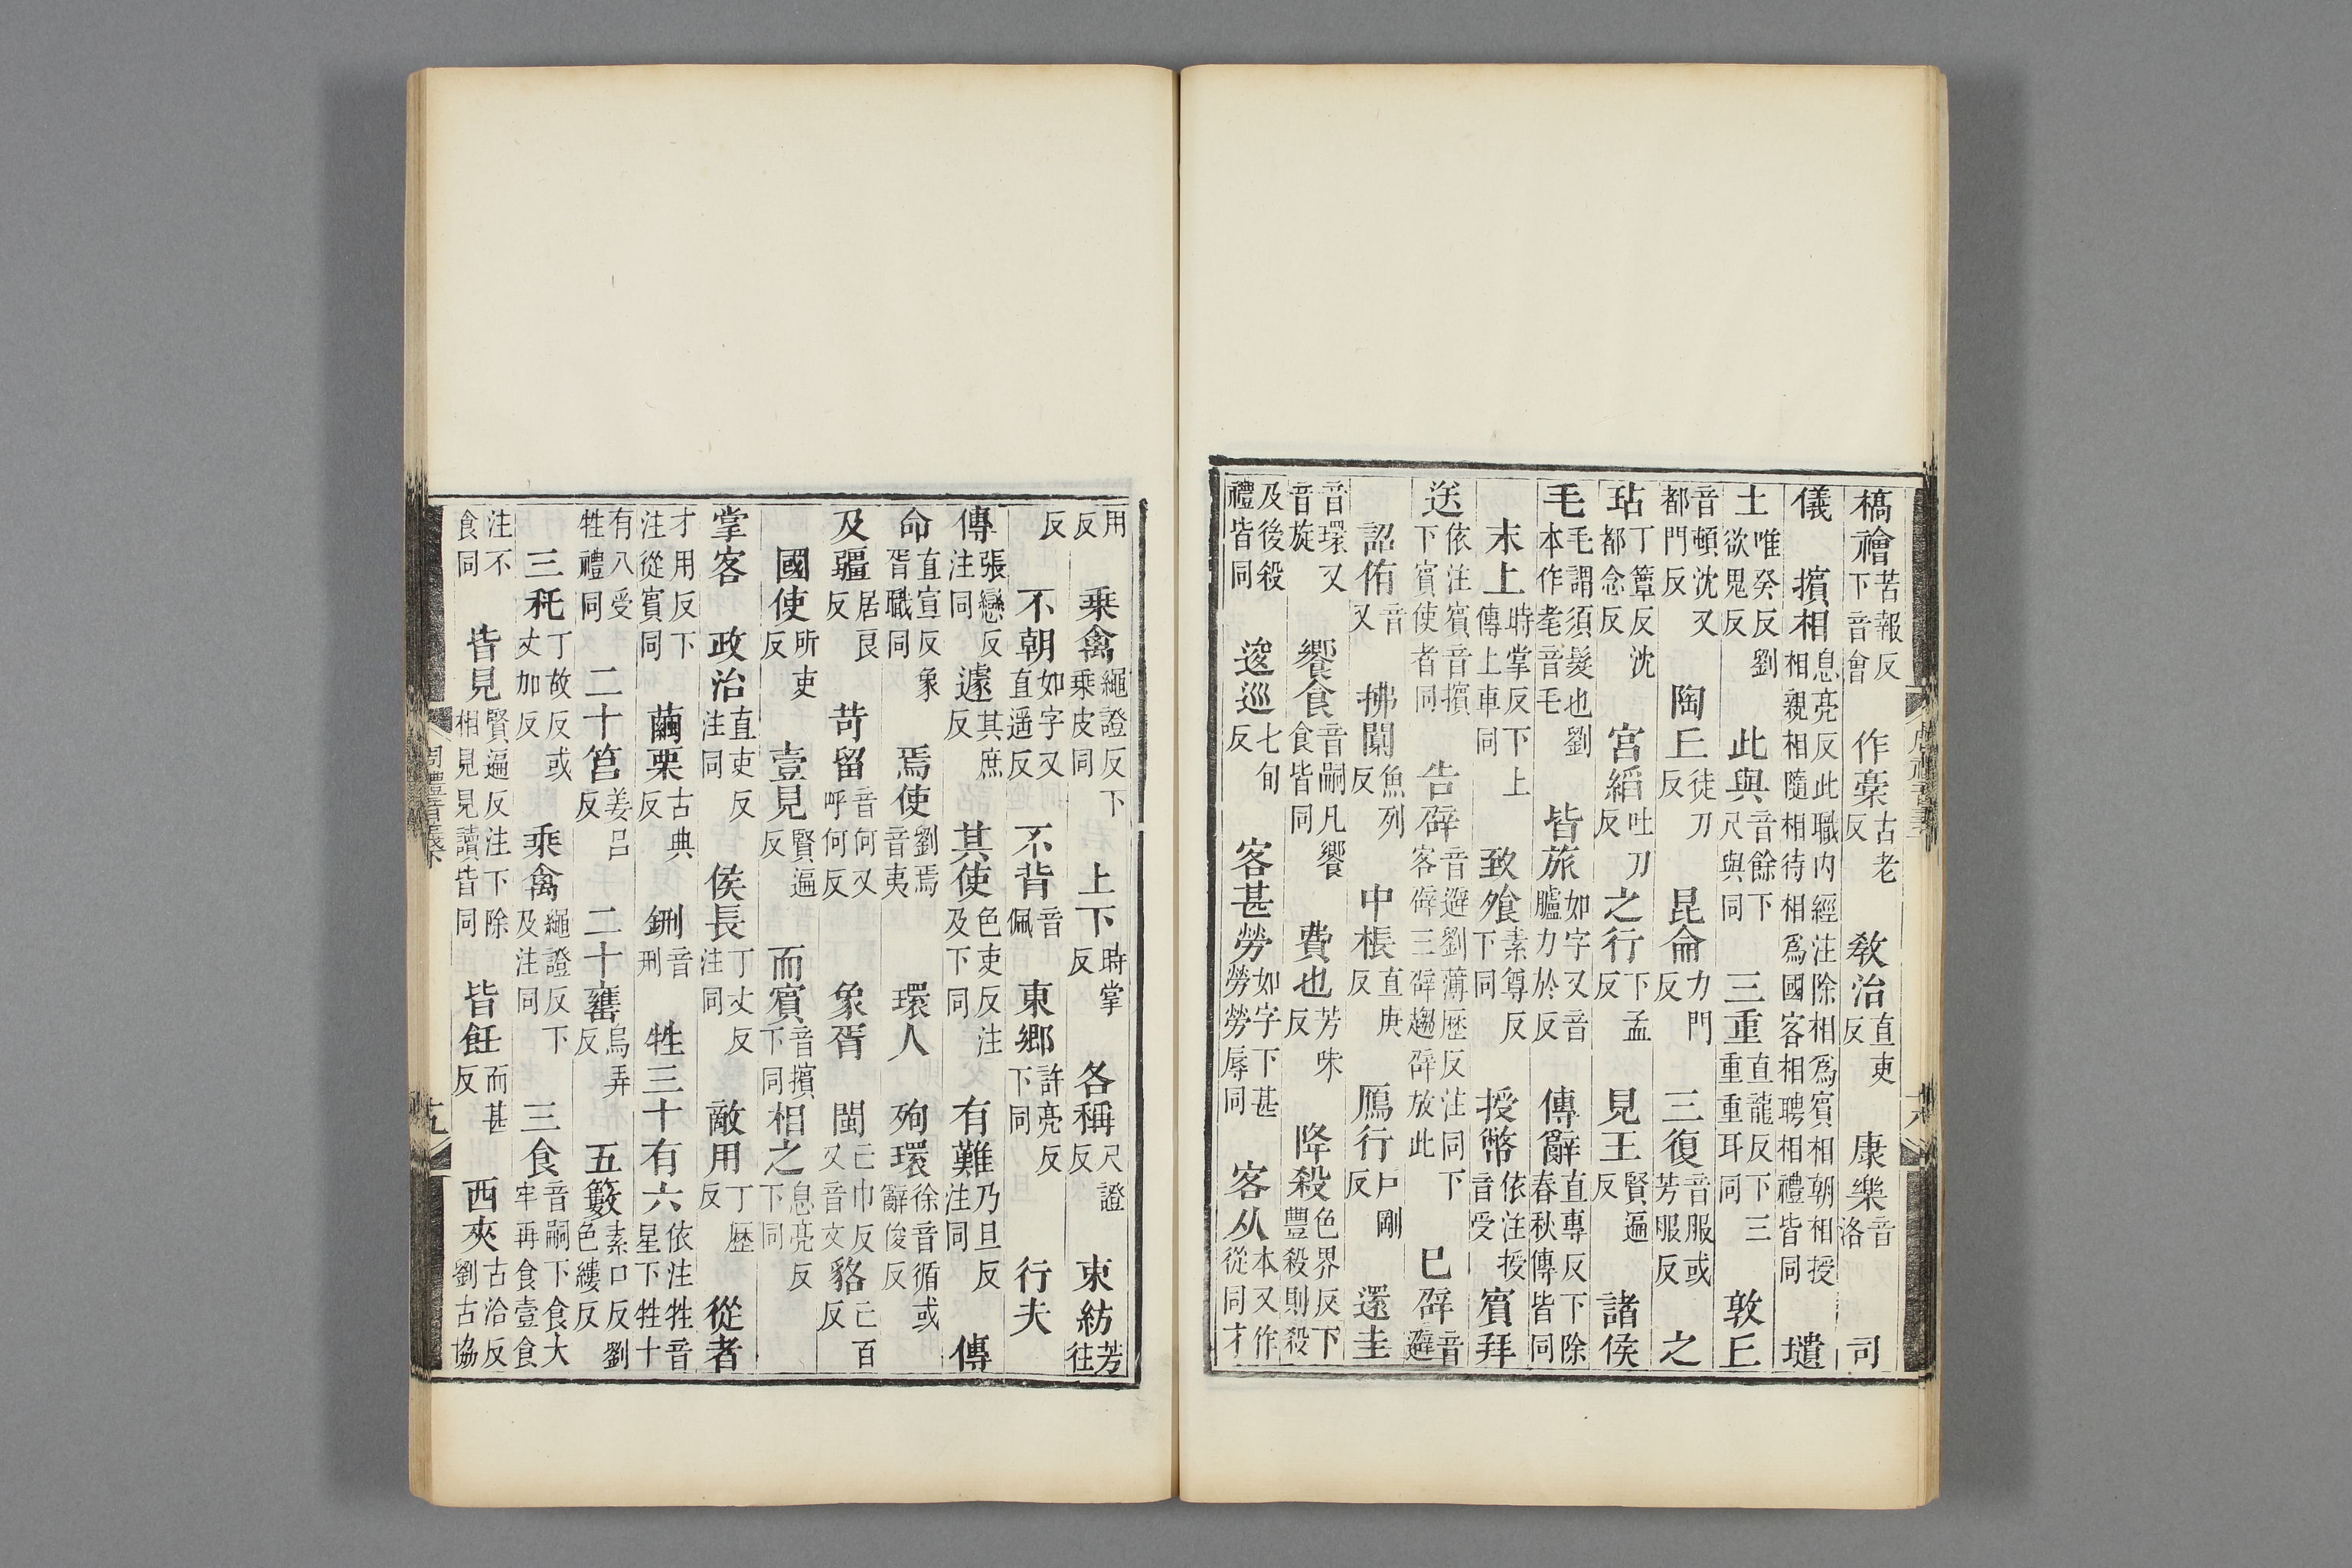 槁禬苦報反下音會 作槀古老反 敎治直吏反 康樂音洛 司
儀 擯相息亮反此職内經注除相爲賓相朝相授相親相隨相待相爲國客相聘相禮皆同 壝
土唯癸反劉欲鬼反 此與音餘下尺與同 三重直龍反下三重重耳同 敦丘
音頓沈又都門反 陶丘徒刀反 昆侖力門反 三復音服或芳服反 之
玷丁簟反沈都念反 宮縚吐刀反 之行下孟反 見王賢遍反 諸侯
毛毛謂須髮也劉本作耄音毛 皆旅如字又音臚力於反 傳辭直專反下除春秋傳皆同
末上時掌反下上傳上車同 致飱素尊反下同 授幣依注授音受 賓拜
送依注賓音擯下賓使者同 告辟音避劉薄歷反注同下客辟三辟趨辟放此 巳辟音避
詔侑音又 拂闑魚列反 中棖直庚反 鴈行戶剛反 還圭
音環又音旋 饗食音嗣凡饗食皆同 費也芳味反 降殺色界反下豐殺則殺
及後殺禮皆同 逡巡七旬反 客甚勞如字下甚勞勞辱同 客从本又作從同才
用反 乘禽繩證反下乘皮同 上下時掌反 各稱尺證反 束紡芳往
反 不朝如字又直遥反 不背音佩 東鄉許亮反下同 行夫
傳張戀反注同 遽其庶反 其使色吏反注及下同 有難乃旦反注同 傳
命直宣反象胥職同 焉使劉焉音夷 環人 殉環徐音循或辭俊反
及疆居艮反 苛留音何又呼何反 象胥 閩亡巾反又音文 貉亡百反
國使所吏反 壹見賢遍反 而賓音擯下同 相之息亮反下同
掌客 政治直吏反注同 侯長丁丈反注同 敵用丁歷反 從者
才用反下注從賓同 繭栗古典反 鉶音刑 牲三十有六依注牲音星下牲十
有八受牲禮同 二十筥姜呂反 二十罋烏弄反 五籔素口反劉色縷反
三秅丁故反或丈加反 乘禽繩證反下及注同 三食音嗣下食大牢再食壹食
注不食同 皆見賢遍反注下除相見見讀皆同 皆飪而甚反 西夾古洽反劉古協